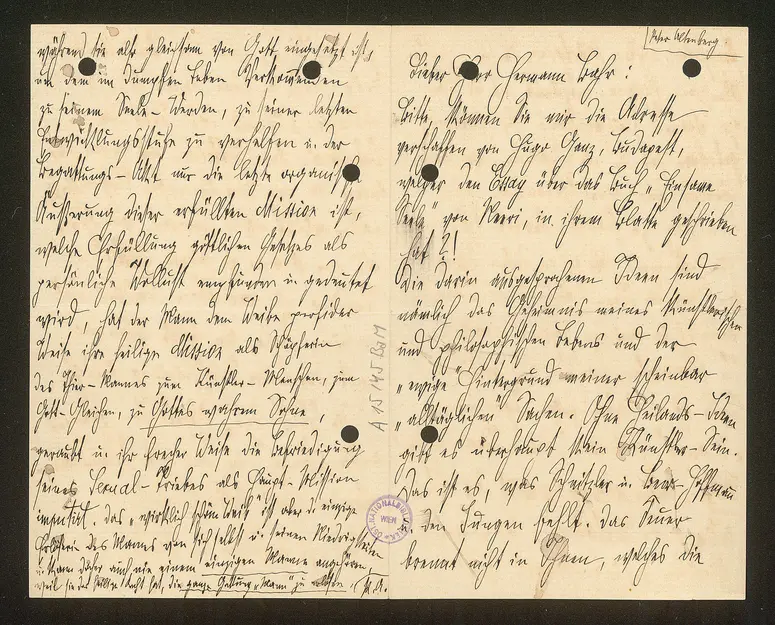 Peter Altenberg.
Lieber Herr Hermann Bahr:
Bitte, können Sie mir die Adresse
verschaffen von Hugo Ganz, Budapest,
welcher den Essay über das Buch „Einsame
Seele" von Neeri, in ihrem Blatte geschrieben
hat?!
Die darin ausgesprochenen Ideen sind
nämlich das Geheimnis meines künstlerischen
und philosophischen Lebens und der
„ewige" Hintergrund meiner scheinbar
„alltäglichen" Sachen. Ohne Heilands-Ideen
gibt es überhaupt kein Künstler-Sein.
Das ist es, was Schnitzler u. Beer-Hoffmann
u. den Jungen fehlt. Das Feuer
brennt nicht in Ihnen, welches die
während sie also gleichsam von Gott eingesetzt ist,
um dem im dumpfen Leben Verkommenden
zu seinem Seele-Werden, zu seiner letzten
Entwicklungsstufe zu verhelfen u. der
Begattungs-Akt nur die letzte organische
Äußerung dieser erfüllten Mission ist,
welche Erfüllung göttlichen Gesetzes als
persönliche Wollust empfunden u. gedeutet
wird, hat der Mann dem Weibe perfider
Weise ihre heilige Mission als Schöpferin
des Thier-Mannes zum Künstler-Menschen, zum
Gott-Gleichen, zu Gottes wahrem Sohne,
geraubt u. ihr frecher Weise die Befriedigung
seines Sexual-Triebes als Haupt-Mission
imputirt. Das „wirklich schöne Weib" ist aber die einzige
Erlöserin des Mannes von sich selbst u. seinen Niedrigkeiten
u. kann daher auch nie einem einzigen Manne angehören,
weil sie das heilige Recht hat, die ganze Gattung „Mann" zu erlösen. P. A.
A 15145 BaM
NATIONALBIBLIOTHEK
WIEN